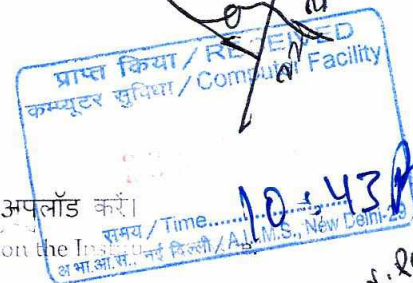 प्राप्त किया / RECEIVED
कम्प्यूटर सुविधा / Computer Facility
अपलॉड करें।
समय / Time.......... 10:43
on the
अ.भा.आ.सं., नई दिल्ली / A.I.I.M.S., New Delhi-29